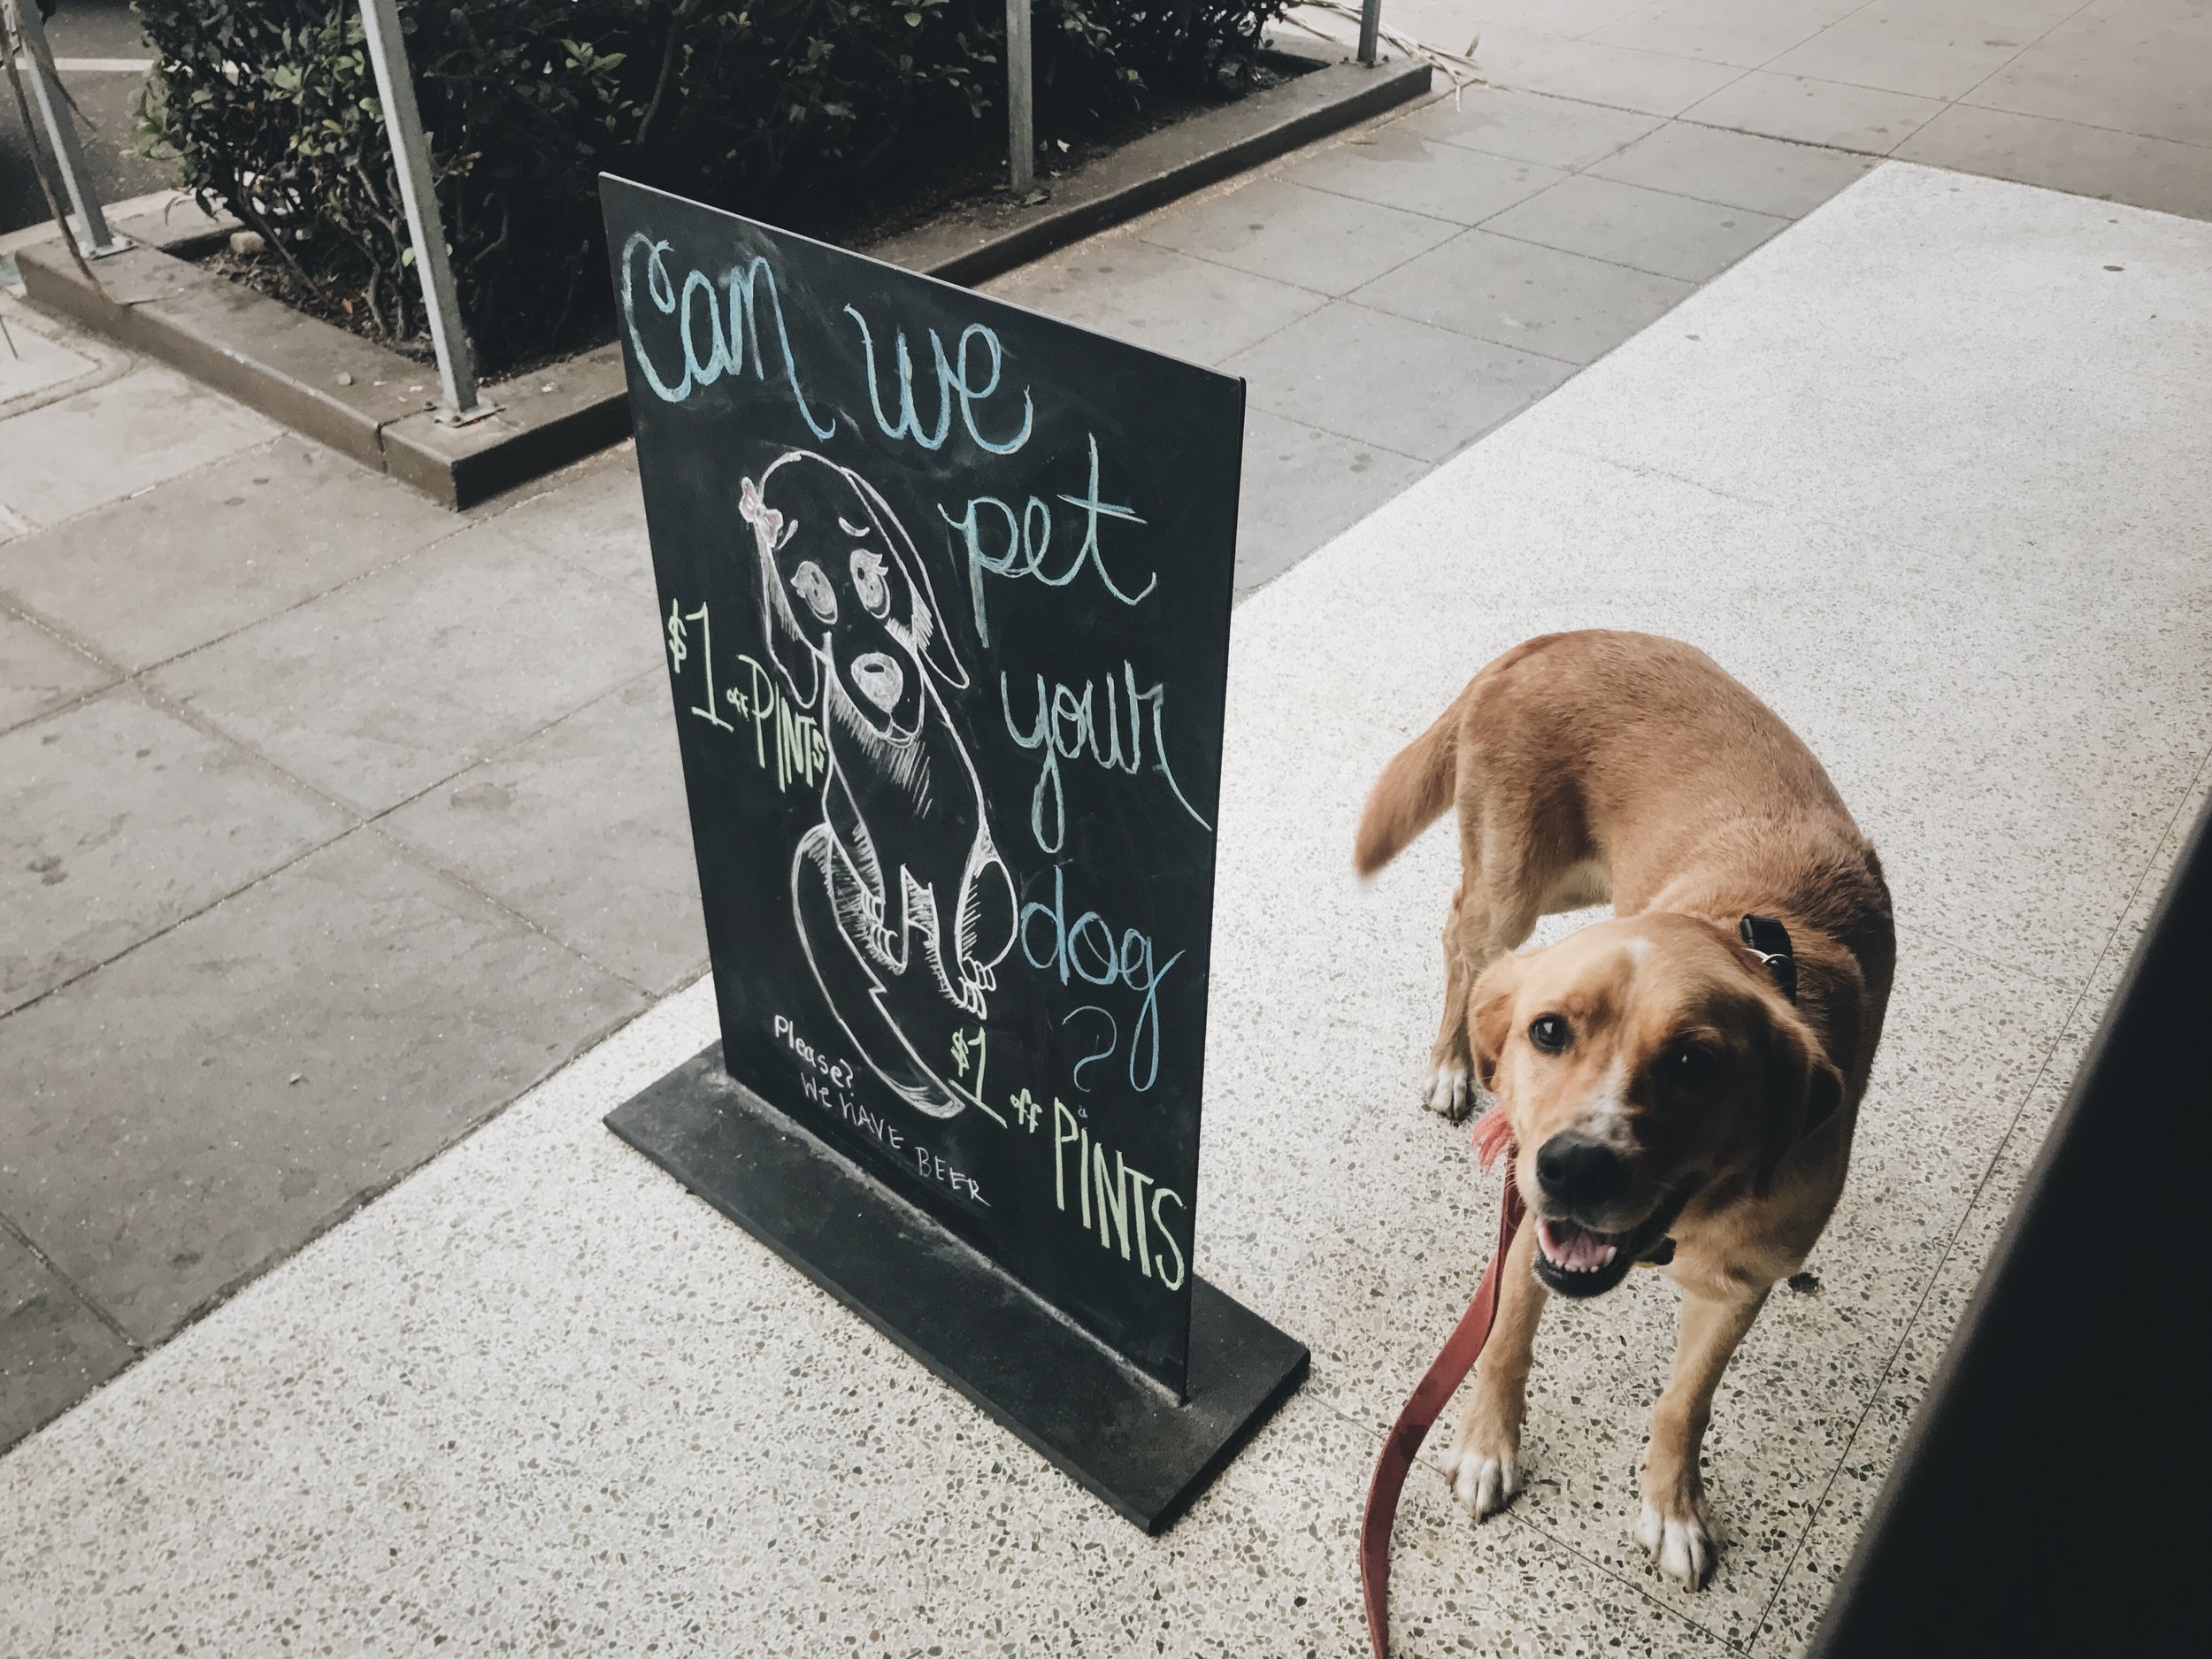 Can we
pet
your
dog
?
$1 off PINTS
Please?
We HAVE BEER
$1 off PINTS